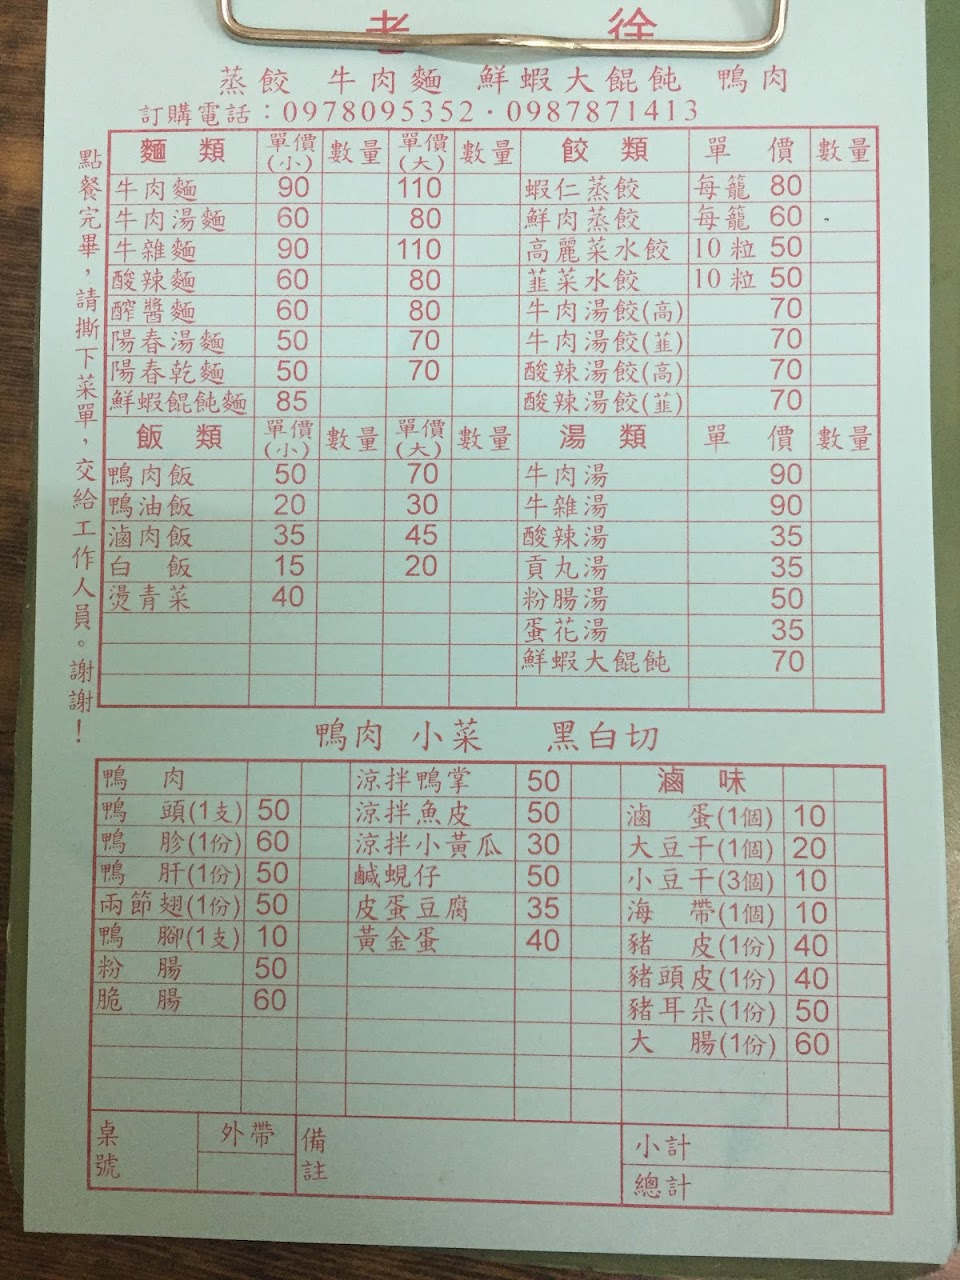 老 徐
蒸餃 牛肉麵 鮮蝦大餛飩 鴨肉
訂購電話：0978095352・0987871413
點餐完畢，請撕下菜單，交給工作人員。謝謝！
麵類 單價(小) 數量 單價(大) 數量 餃類 單價 數量
牛肉麵 90 110 蝦仁蒸餃 每籠 80
牛肉湯麵 60 80 鮮肉蒸餃 每籠 60
牛雜麵 90 110 高麗菜水餃 10粒 50
酸辣麵 60 80 韮菜水餃 10粒 50
醡醬麵 60 80 牛肉湯餃(高) 70
陽春湯麵 50 70 牛肉湯餃(韮) 70
陽春乾麵 50 70 酸辣湯餃(高) 70
鮮蝦餛飩麵 85 酸辣湯餃(韮) 70
飯類 單價(小) 數量 單價(大) 數量 湯類 單價 數量
鴨肉飯 50 70 牛肉湯 90
鴨油飯 20 30 牛雜湯 90
滷肉飯 35 45 酸辣湯 35
白飯 15 20 貢丸湯 35
燙青菜 40 粉腸湯 50
蛋花湯 35
鮮蝦大餛飩 70
鴨肉 小菜 黑白切
鴨肉 涼拌鴨掌 50 滷味
鴨頭(1支) 50 涼拌魚皮 50 滷蛋(1個) 10
鴨胗(1份) 60 涼拌小黃瓜 30 大豆干(1個) 20
鴨肝(1份) 50 鹹蜆仔 50 小豆干(3個) 10
兩節翅(1份) 50 皮蛋豆腐 35 海帶(1個) 10
鴨腳(1支) 10 黃金蛋 40 豬皮(1份) 40
粉腸 50 豬頭皮(1份) 40
脆腸 60 豬耳朵(1份) 50
大腸(1份) 60
桌號 外帶 備註 小計
總計